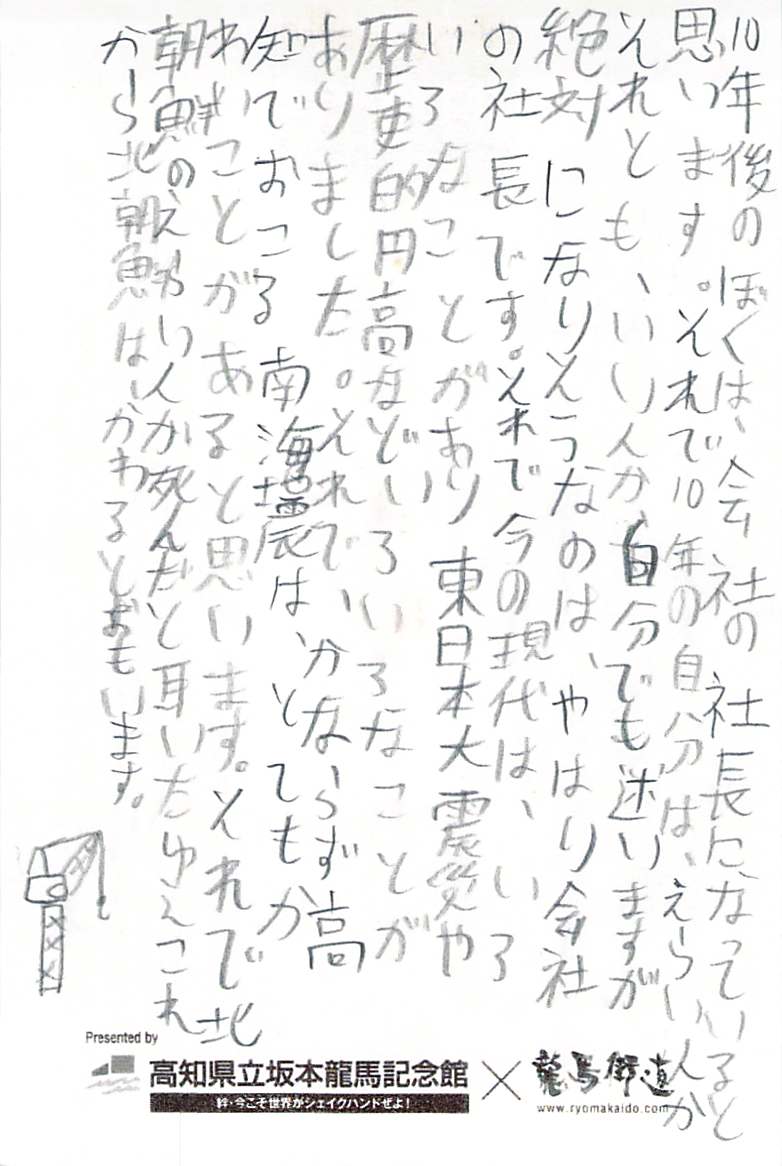 10年後のぼくは、会社の社長になっていると
思います。それで10年の自分は、えらい人か
それとも、いい人か自分でも迷いますが
絶対になりそうなのは、やはり会社
の社長です。それで今の現代は、いろ
いろなことがあり東日本大震災や
歴史的円高などいろいろなことが
ありました。それで、かならず高
知でおこる南海震は、とてもか
ことがあると思います。それで北
朝鮮のえらい人が死んだと耳いた これ
から北朝鮮は、かわるとおもいます。
Presented by
高知県立坂本龍馬記念館 × 龍馬街道
絆・今こそ世界がシェイクハンドぜよ！
www.ryomakaido.com